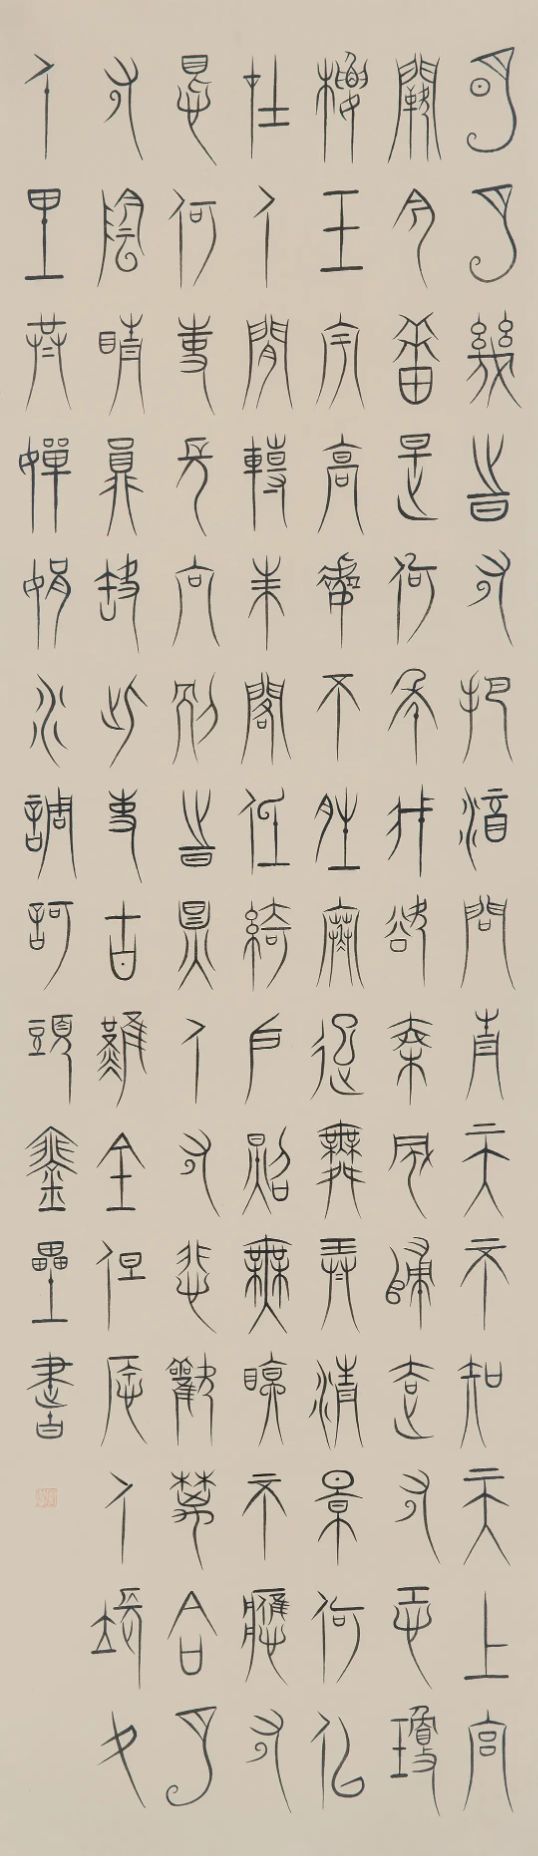 明月幾時有把酒問青天不知天上宮
闕今番是何年我欲乘風歸去又恐瓊
樓玉宇高處不勝寒起舞弄清景何似
在人間轉朱閣低綺戶照無眠不應有
恨何事長向別時圓人有悲歡離合月
有陰晴圓缺此事古難全但願人長久
千里共嬋娟水調歌頭壘書